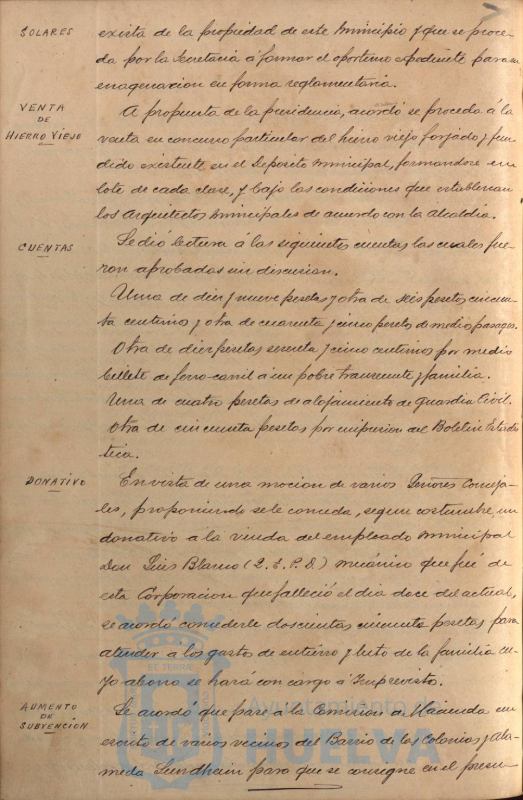 SOLARES
exista de la propiedad de este Municipio y que se proce-
da por la Secretaria á formar el oportuno expediente para su
enagenacion en forma reglamentaria.
VENTA
DE
HIERRO VIEJO
A propuesta de la presidencia, acordó se proceda á la
venta en concurso particular del hierro viejo forjado y fun-
dido existente en el Deposito Municipal, formandose un
lote de cada clase, y bajo las condiciones que establezcan
los Arquitectos Municipales de acuerdo con la Alcaldia.
CUENTAS
Se dió lectura á las siguientes cuentas las cuales fue-
ron aprobadas sin discusion.
Una de diez y nueve pesetas y otra de seis pesetas cincuen-
ta centimos y otra de cuarenta y cinco pesetas de medios pasages.
Otra de diez pesetas sesenta y cinco centimos por medio
billete de ferro-carril á un pobre transeunte y familia.
Una de cuatro pesetas de alojamiento de Guardia Civil.
Otra de cincuenta pesetas por impresion del Boletin Estadis-
tica.
DONATIVO
En vista de una mocion de varios Señores Conceja-
les, proponiendo se le conceda, segun costumbre, un
donativo á la viuda del empleado Municipal
Don Luis Blanco (Q.E.P.D.) mecánico que fué de
esta Corporacion que falleció el dia doce del actual,
se acordó concederle doscientas cincuenta pesetas para
atender á los gastos de entierro y luto de la familia cu-
yo abono se hará con cargo á Imprevistos.
AUMENTO
DE
SUBVENCIÓN
Se acordó que pase á la Comision de Hacienda un
escrito de varios vecinos del Barrio de las Colonias y Ala-
meda Sundheim para que se consigne en el presu-
Ayuntamiento
HUELVA